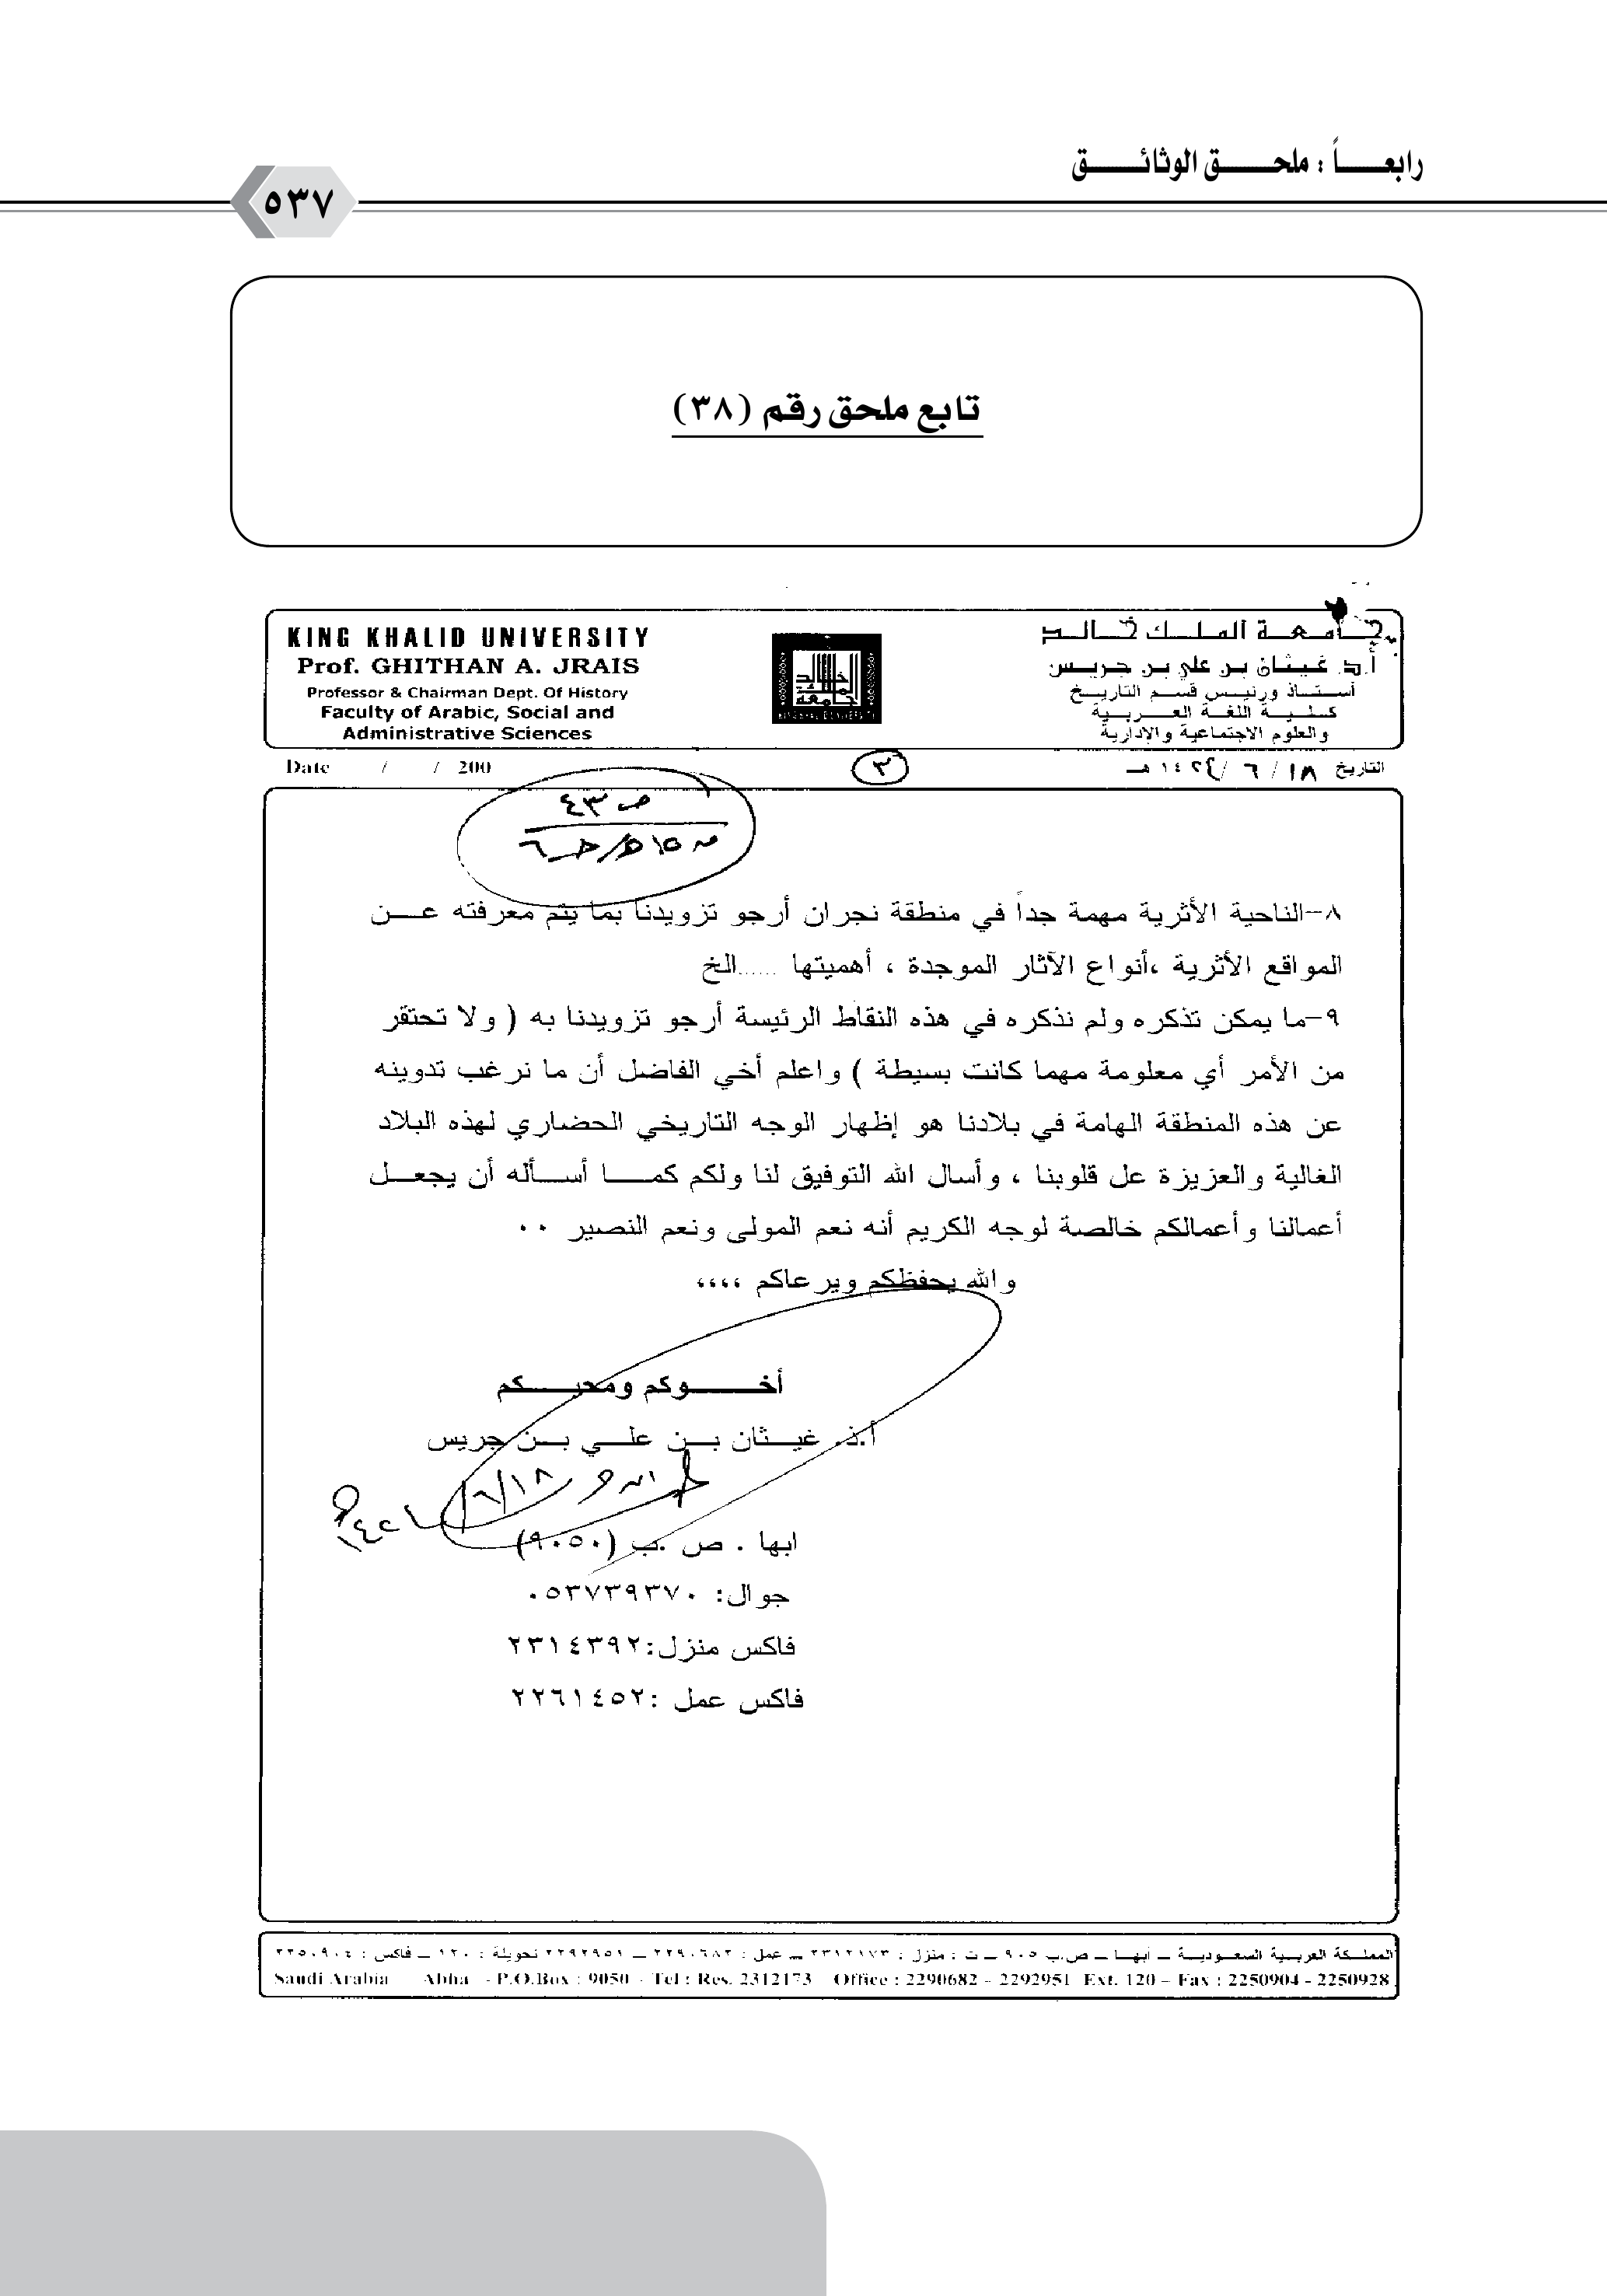 رابعاً : ملحق الوثائق
٥٣٧
تابع ملحق رقم (٣٨)
KING KHALID UNIVERSITY
Prof. GHITHAN A. JRAIS
Professor & Chairman Dept. Of History
Faculty of Arabic, Social and
Administrative Sciences
جامعة الملك خالد
أ.د. غيثان بن علي بن جريس
أستاذ ورئيس قسم التاريخ
كلية اللغة العربية
والعلوم الاجتماعية والإدارية
Date / / 200
٣
التاريخ ١٨ / ٦ / ١٤٢٤ هـ
ص ٤٣
٨-الناحية الأثرية مهمة جداً في منطقة نجران أرجو تزويدنا بما يتم معرفته عن
المواقع الأثرية ،أنواع الآثار الموجدة ، أهميتها ......الخ
٩-ما يمكن تذكره ولم نذكره في هذه النقاط الرئيسة أرجو تزويدنا به ( ولا تحتقر
من الأمر أي معلومة مهما كانت بسيطة ) واعلم أخي الفاضل أن ما نرغب تدوينه
عن هذه المنطقة الهامة في بلادنا هو إظهار الوجه التاريخي الحضاري لهذه البلاد
الغالية والعزيزة عل قلوبنا ، وأسال الله التوفيق لنا ولكم كما أسأله أن يجعل
أعمالنا وأعمالكم خالصة لوجه الكريم أنه نعم المولى ونعم النصير ٠٠
والله يحفظكم ويرعاكم ،،،،
أخوكم ومحبكم
أ.د. غيثان بن علي بن جريس
ابها . ص .ب (٩٠٥٠)
جوال: ٠٥٣٧٣٩٣٧٠
فاكس منزل:٢٣١٤٣٩٢
فاكس عمل :٢٢٦١٤٥٢
المملكة العربية السعودية – أبها – ص.ب ٩٠٥ – ت : منزل : ٢٣١٢١٧٣ – عمل : ٢٢٩٠٦٨٢ – ٢٢٩٢٩٥١ تحويلة : ١٢٠ – فاكس : ٢٢٥٠٩٠٤
Saudi Arabia Abha - P.O.Box : 9050 - Tel : Res. 2312173 Office : 2290682 - 2292951 Ext. 120 – Fax : 2250904 - 2250928